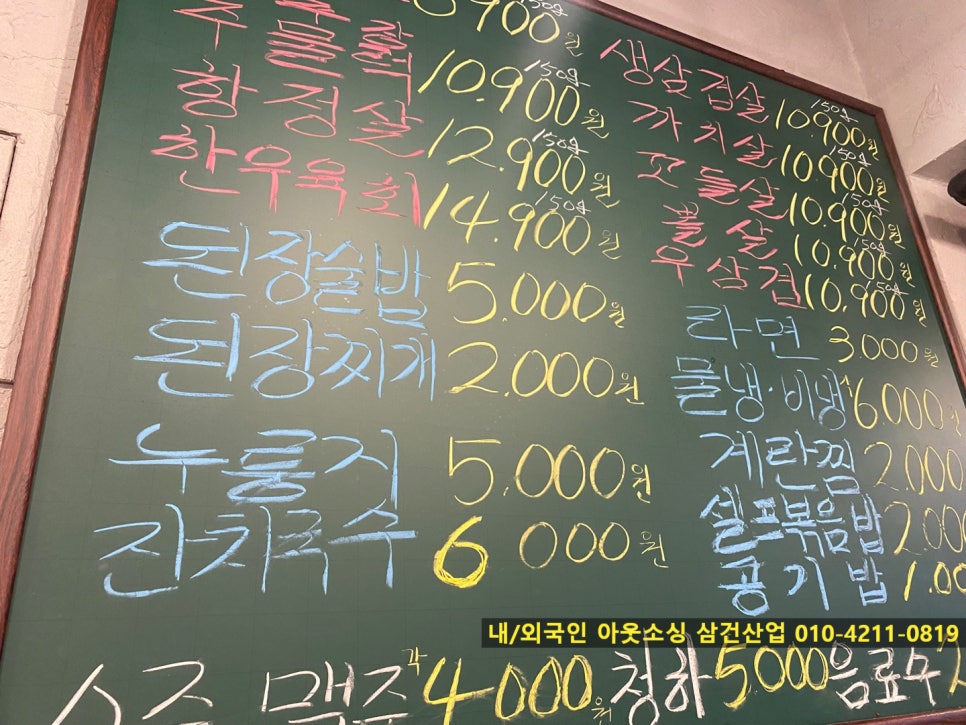 900원 150g
10.900원 150g
항정살 12.900원 150g
한우육회 14.900원 150g
된장술밥 5.000원
된장찌개 2.000원
누룽지 5.000원
잔치국수 6000원
생삼겹살 10.900원 150g
가치살 10.900원 150g
꼬들살 10.900원 150g
뽈살 10.900원 150g
우삼겹 10.900원 150g
라면 3.000원
물냉·비냉 6.000원
계란찜 2.000
셀프볶음밥 2.000
공기밥 1.00
소주 맥주 각 4000원 청하 5000 음료수
내/외국인 아웃소싱 삼건산업 010-4211-0819